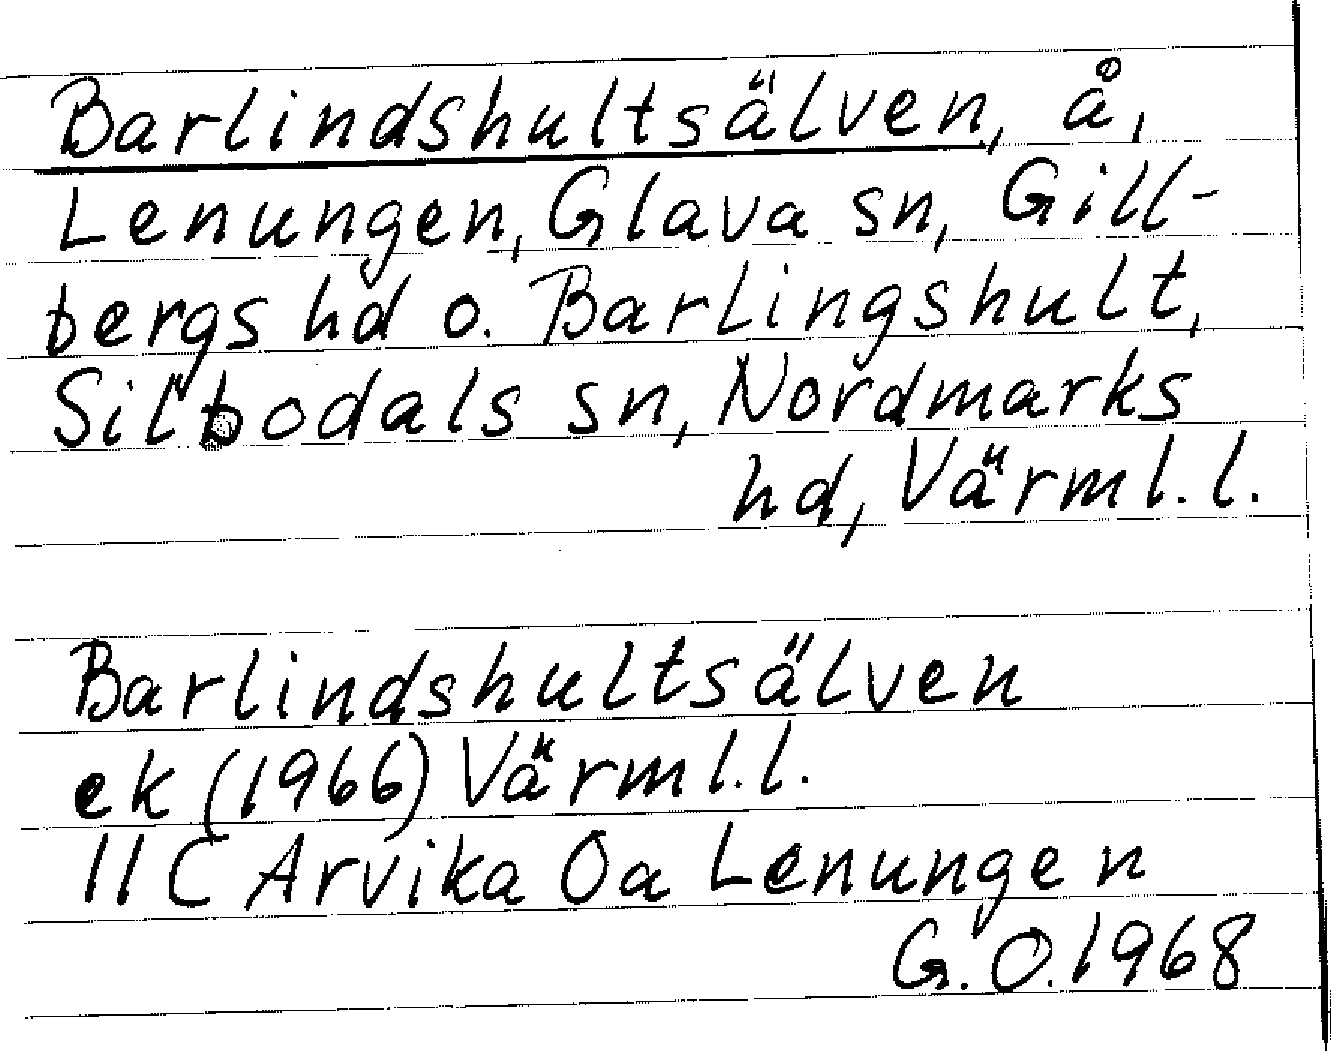 Barlindshultsälven, å,
Lenungen, Glava sn, Gill-
bergs hd o. Barlingshult,
Silbodals sn, Nordmarks
hd, Värml. l.
Barlindshultsälven
ek (1966) Värml. l.
11 C Arvika 0a Lenungen
G. O. 1968